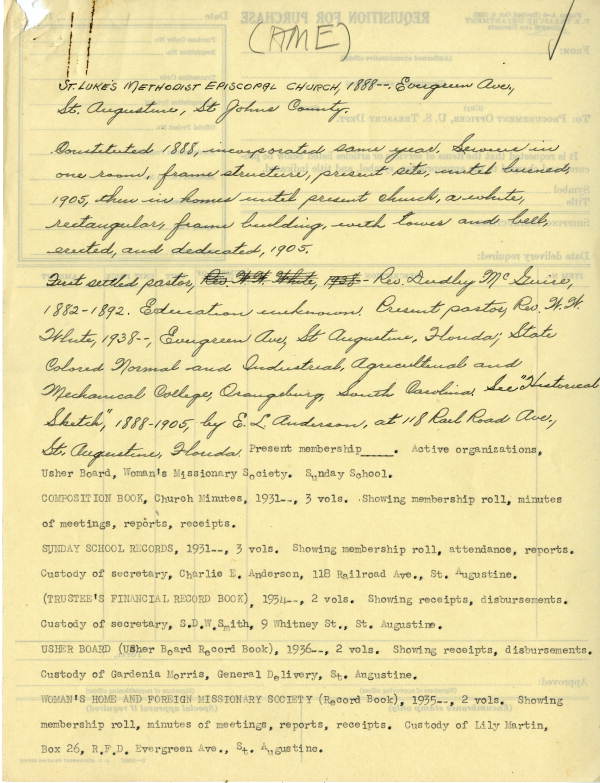 (AME)
St. Luke's Methodist Episcopal Church, 1888--. Evergreen Ave.,
St. Augustine, St Johns County.
Constituted 1888, incorporated same year. Services in
one room, frame structure, present site, until burned,
1905, then in homes until present church, a white,
rectangular, frame building, with tower and bell,
erected, and dedicated, 1905.
First settled pastor, Rev. W. W. White, 1938-- Rev. Dudley McGuire,
1882-1892. Education unknown. Present pastor, Rev. W. W.
White, 1938--, Evergreen Ave, St Augustine, Florida; State
Colored Normal and Industrial, Agricultural and
Mechanical College, Orangeburg, South Carolina. See "Historical
Sketch," 1888-1905, by E. L. Anderson, at 118 Rail Road Ave.,
St. Augustine, Florida. Present membership_____. Active organizations,
Usher Board, Woman's Missionary Society. Sunday School.
COMPOSITION BOOK, Church Minutes, 1931--, 3 vols. Showing membership roll, minutes
of meetings, reports, receipts.
SUNDAY SCHOOL RECORDS, 1931--, 3 vols. Showing membership roll, attendance, reports.
Custody of secretary, Charlie E. Anderson, 118 Railroad Ave., St. Augustine.
(TRUSTEE'S FINANCIAL RECORD BOOK), 1934--, 2 vols. Showing receipts, disbursements.
Custody of secretary, S.D.W.Smith, 9 Whitney St., St. Augustine.
USHER BOARD (Usher Board Record Book), 1936--, 2 vols. Showing receipts, disbursements.
Custody of Gardenia Morris, General Delivery, St. Augustine.
WOMAN'S HOME AND FOREIGN MISSIONARY SOCIETY (Record Book), 1935--, 2 vols. Showing
membership roll, minutes of meetings, reports, receipts. Custody of Lily Martin,
Box 26, R.F.D. Evergreen Ave., St. Augustine.